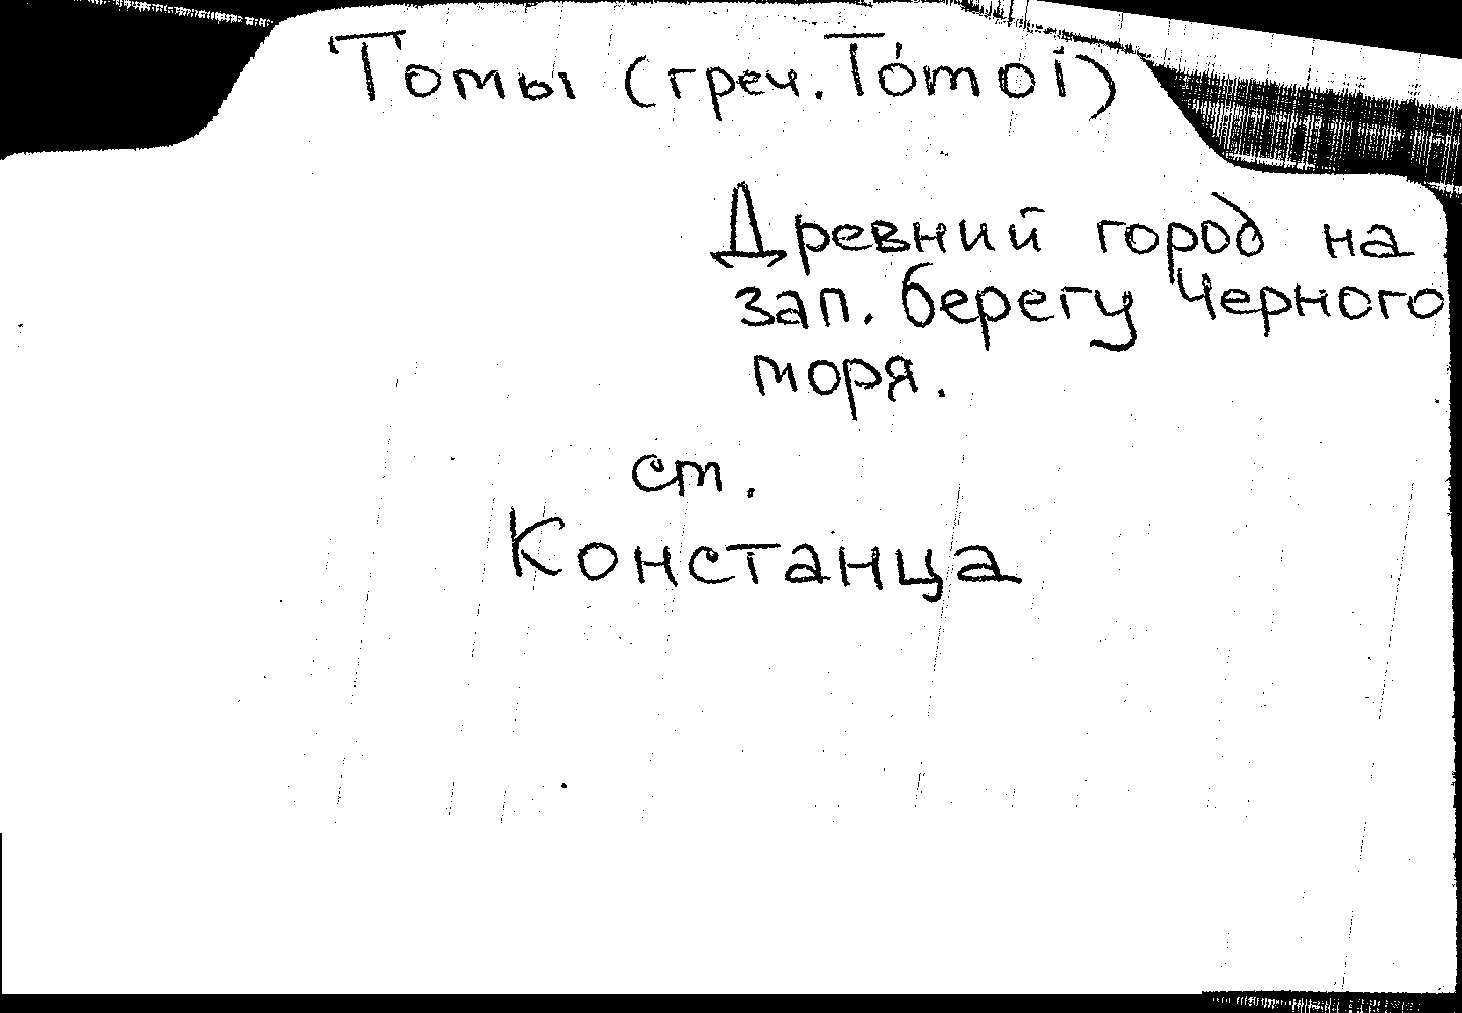 Томы (греч. Tómoi)
Древний город на
зап. берегу Черного
моря.
ст.
Констанца